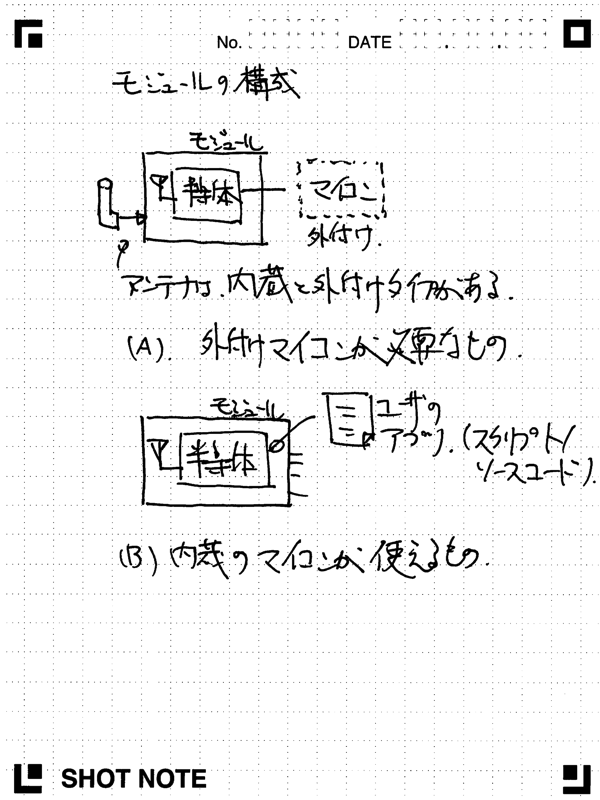 No. DATE . .
モジュールの構成
モジュール
半導体
マイコン
外付け.
アンテナは、内蔵と外付けタイプがある.
(A). 外付けマイコンが必要なもの.
モジュール
半導体
ユーザの
アプリ. (スクリプト/
ソースコード).
(B) 内蔵のマイコンが使えるもの.
SHOT NOTE